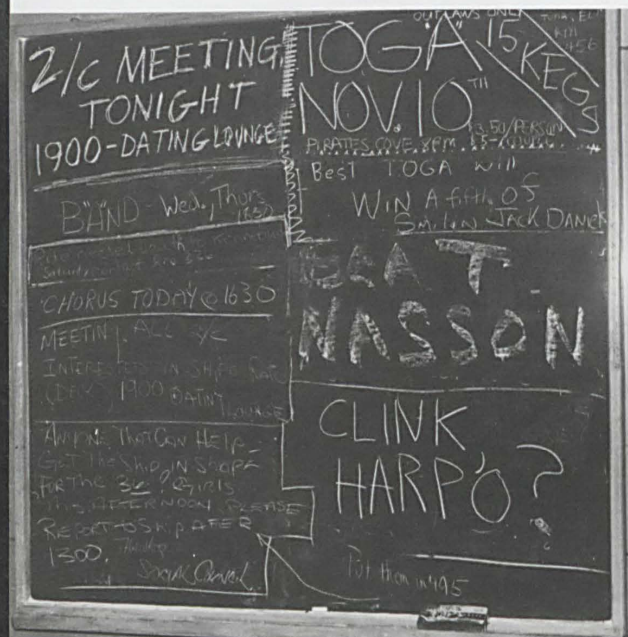 2/C MEETING
TONIGHT
1900-DATING LOUNGE
BAND - Wed., Thurs
1830
CHORUS TODAY @ 1630
MEETING ALL 2/C
INTERESTED IN SHIP
1900 DATING
LOUNGE
ANYONE THAT CAN HELP
GET THE SHIP IN SHAPE
FOR THE GIRLS
THIS AFTERNOON PLEASE
REPORT TO SHIP AFTER
1300.
Social Council
OUTLAWS ONLY
TOGA
15
KEGS
NOV. 10TH
3.50/PERSON
PIRATES COVE 8PM
BEST TOGA WILL
WIN A fifth OF
JACK DANIELS
BEAT
NASSON
CLINK
HARPO?
Put them in 495